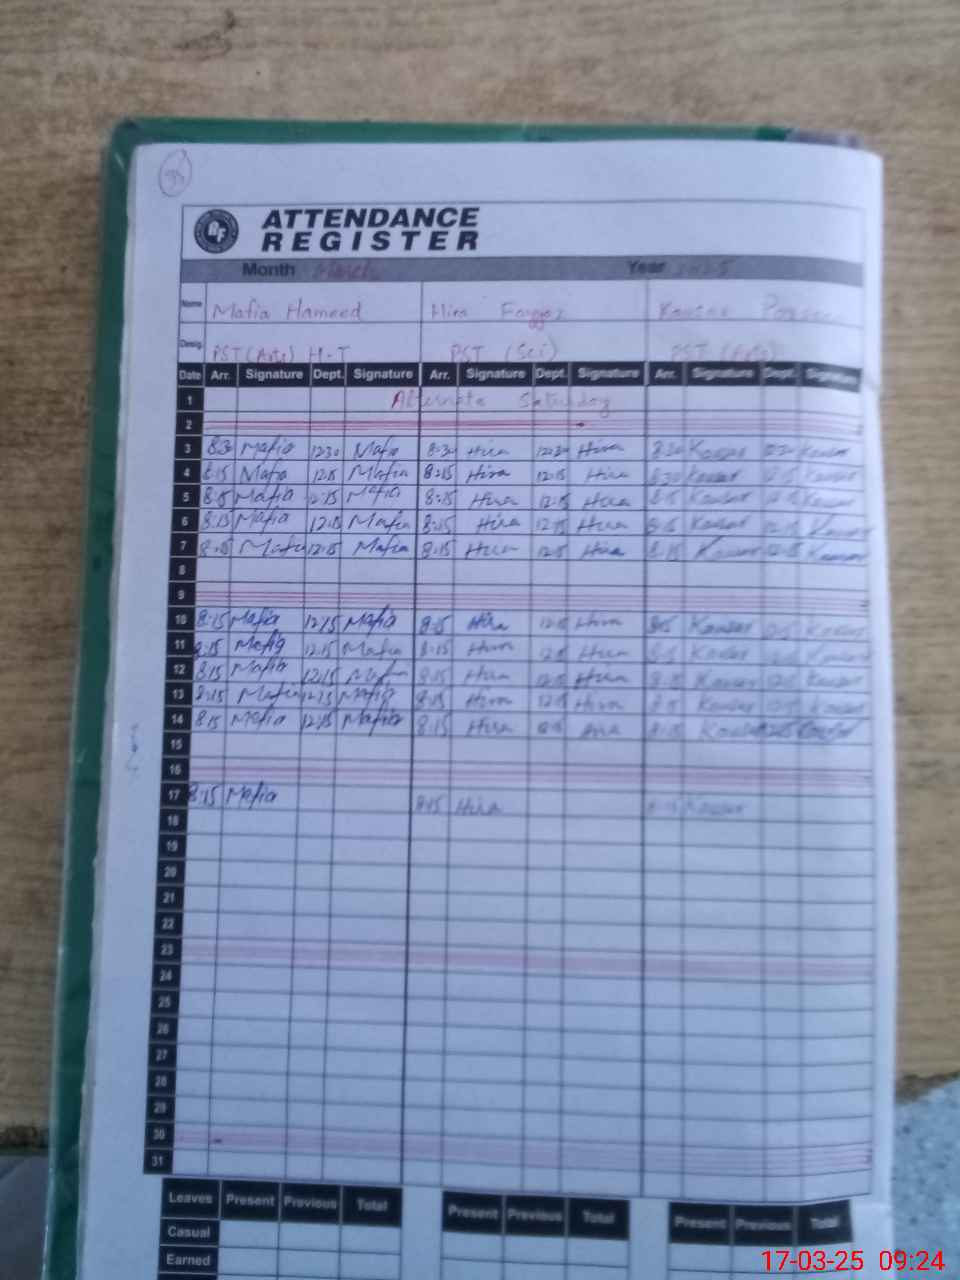 ATTENDANCE
REGISTER
Month March Year 2025
Name Mafia Hameed Hira Kausar
Desig. PST (Arts) H-T PST (Sci) PST (Arts)
Date Arr. Signature Dept. Signature Arr. Signature Dept. Signature Arr. Signature Dept. Signature
1 Alternate Saturday
2
3 8:30 Mafia 12:30 Mafia 8:30 Hira 12:30 Hira 8:30 Kausar 12:30 Kausar
4 8:15 Mafia 12:15 Mafia 8:15 Hira 12:15 Hira 8:30 Kausar 12:15 Kausar
5 8:15 Mafia 12:15 Mafia 8:15 Hira 12:15 Hira 8:15 Kausar 12:15 Kausar
6 8:15 Mafia 12:15 Mafia 8:15 Hira 12:15 Hira 8:15 Kausar 12:15 Kausar
7 8:15 Mafia 12:15 Mafia 8:15 Hira 12:15 Hira 8:15 Kausar 12:15 Kausar
8
9
10 8:15 Mafia 12:15 Mafia 8:15 Hira 12:15 Hira 8:15 Kausar 12:15 Kausar
11 8:15 Mafia 12:15 Mafia 8:15 Hira 12:15 Hira 8:15 Kausar Kausar
12 8:15 Mafia 12:15 Mafia 8:15 Hira 12:15 Hira 8:15 Kausar 12:15 Kausar
13 8:15 Mafia 12:15 Mafia 8:15 Hira 12:15 Hira 8:15 Kausar 12:15 Kausar
14 8:15 Mafia 12:15 Mafia 8:15 Hira 12:15 Hira 8:15 Kausar 12:15 Kausar
15
16
17 8:15 Mafia 8:15 Hira 8:15 Kausar
18
19
20
21
22
23
24
25
26
27
28
29
30
31
Leaves Present Previous Total Present Previous Total Present Previous Total
Casual
Earned
17-03-25 09:24